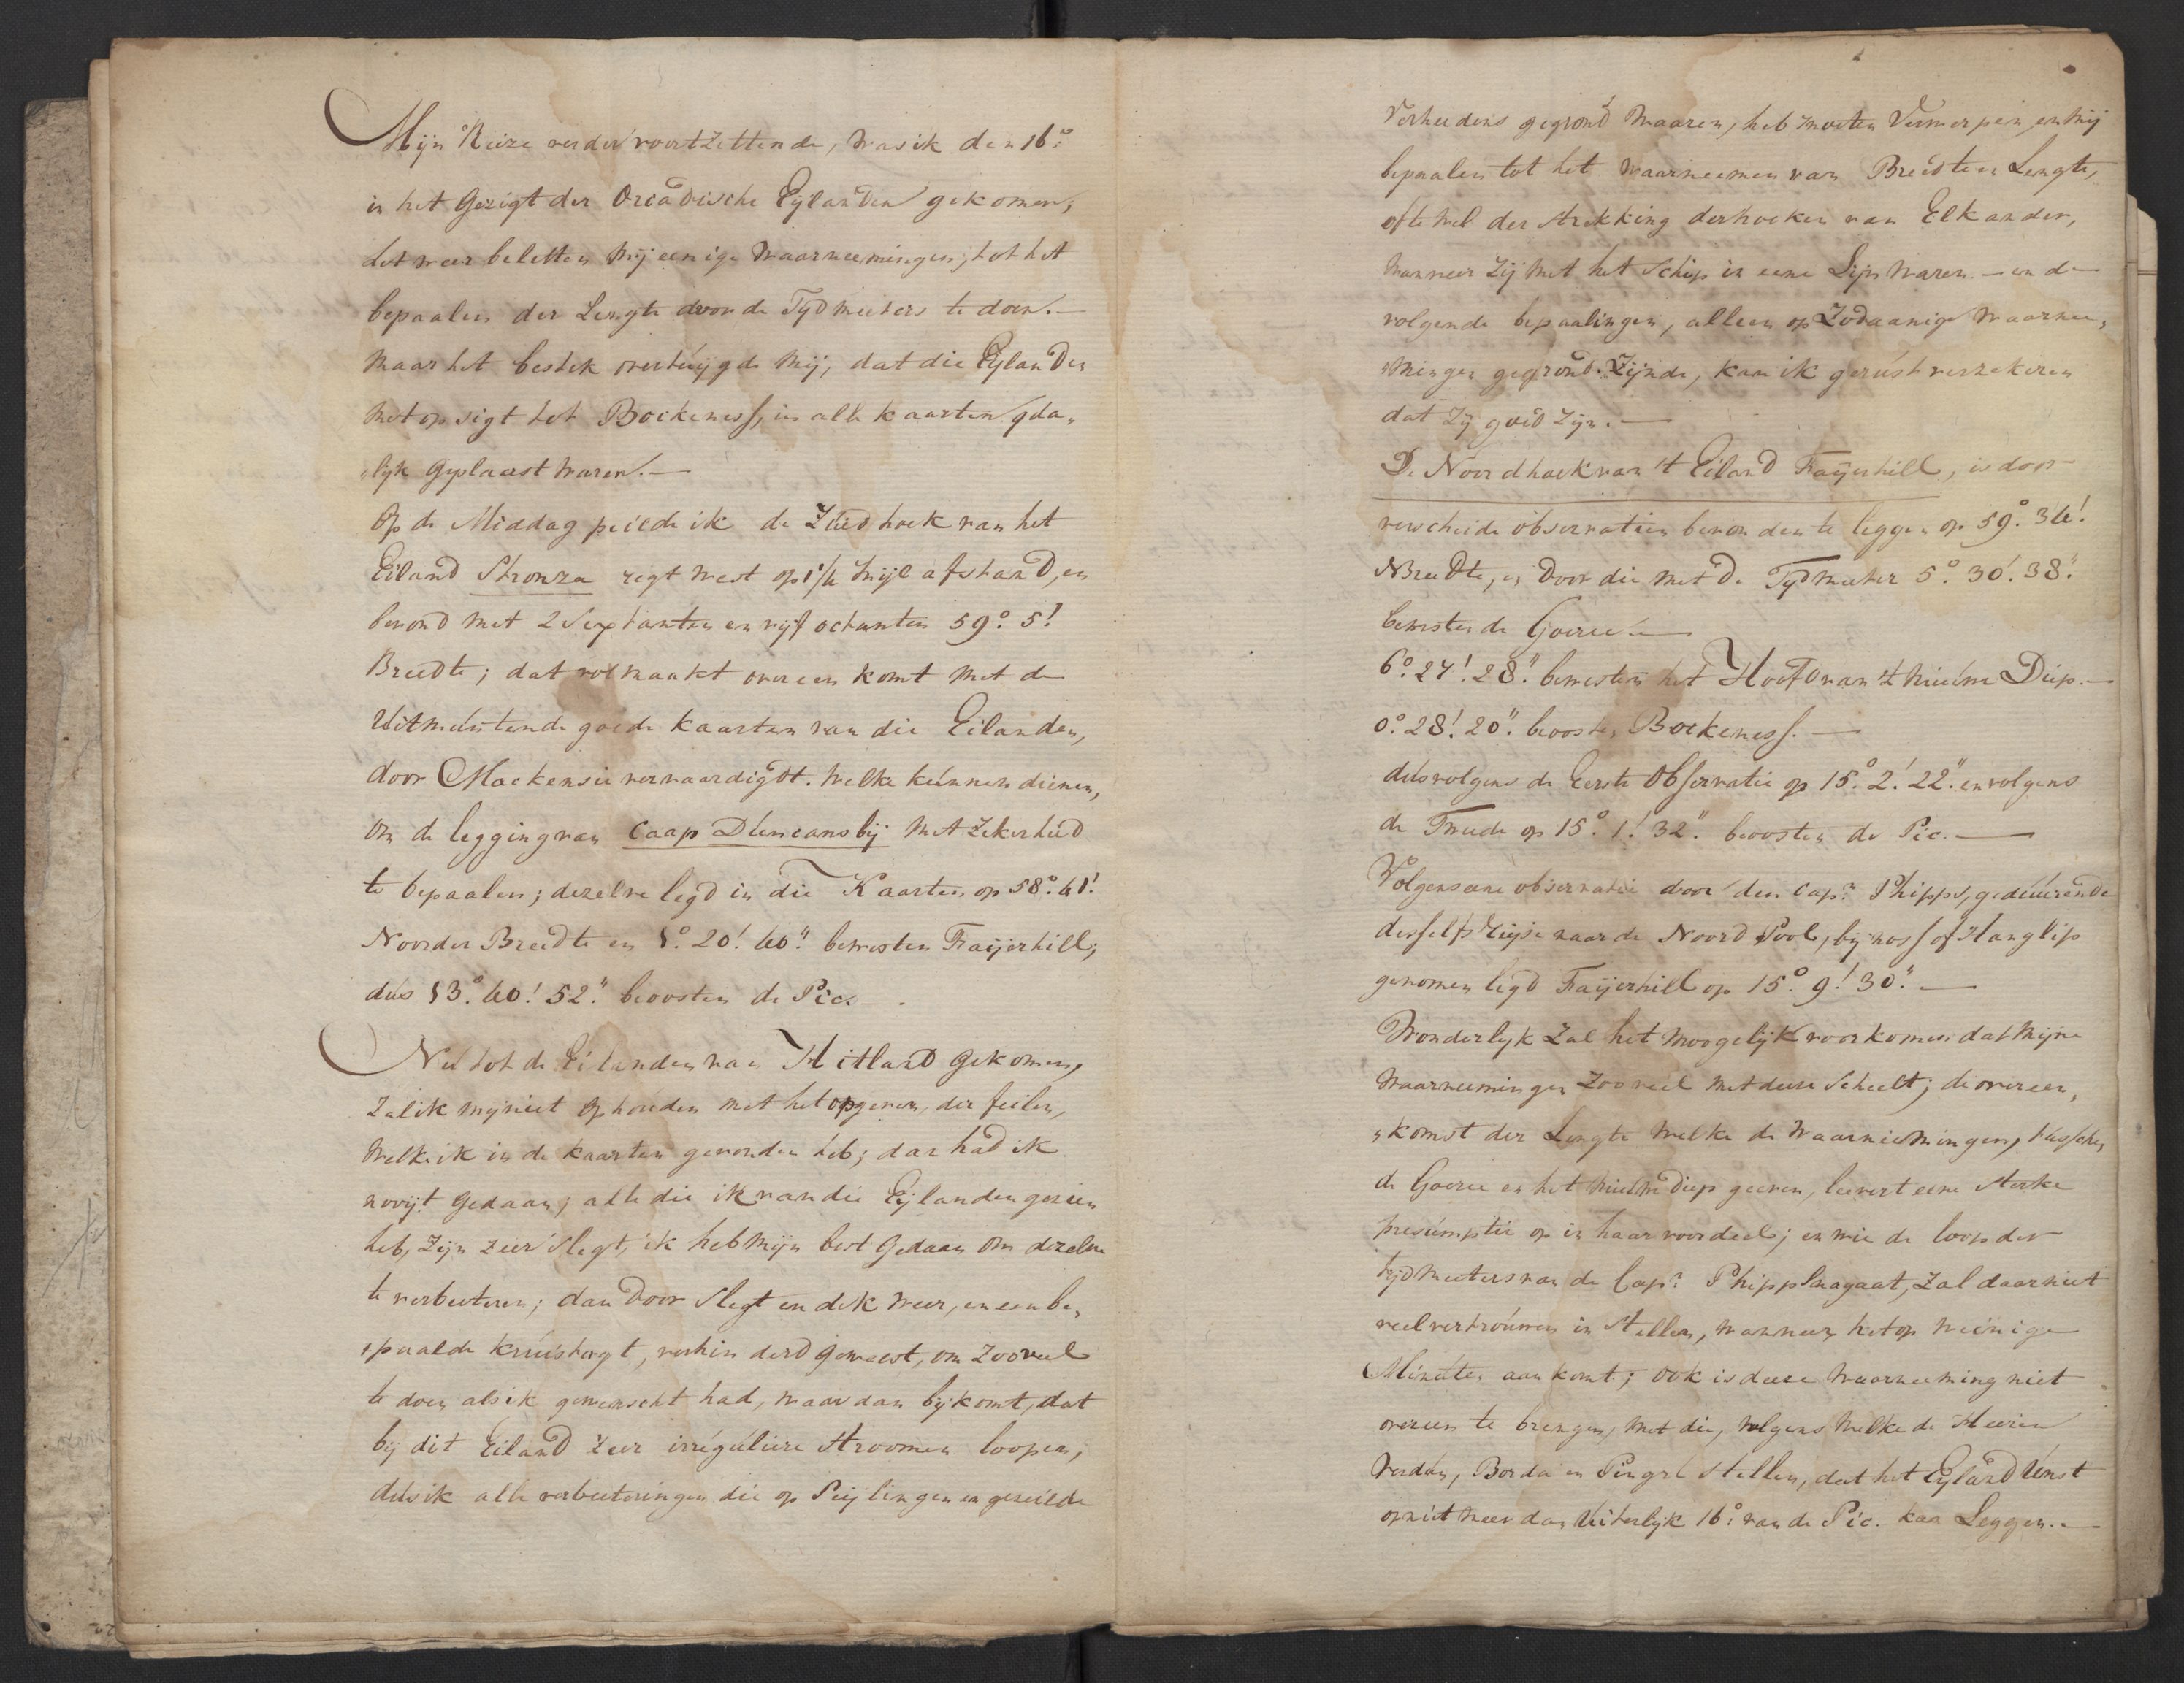 Mijn Reize verder voortzettende, was ik den 16.e
in het Gezigt der Orcadische Eylanden gekomen,
het weer beletten Mij eenige Waarneemingen, tot het
bepaalen der Lengte door de Tydmeeters te doen. —
Maar het bestek overtuygde Mij, dat die Eylanden
Met opsigt tot Bockeness, in alle kaarten qda„
„lijk Geplaatst Waren. —
Op de Middag peilde ik de Zuidhoek van het
Eiland Stronza regt West op 1 1/4 Mijl afstand, en
bevond Met 2 Sextanten en vijf octanten 59° 5'
Breedte; dat volmaakt over een komt Met de
Uitmuntende goede kaarten van die Eilanden,
door Mackensie vervaardigdt. Welke kunnen dienen,
om de legging van Caap Duncansbij Met Zekerheid
te bepaalen; dezelve legd in die Kaarten op 58°. 41'
Noorder Breedte en 1°. 20'. 40" bewesten Faijerhill;
dus 13°. 40'. 52." beoosten de Pic. —
Nu tot de Eilanden van Hitland Gekomen,
Zal ik mij niet Ophouden met het opgeven, der feilen,
Welke ik in de kaarten gevonden heb; dan had ik
nooijt Gedaan; alle die ik van die Eylanden gezien
heb, Zijn zeer Slegt, ik heb Mijn best Gedaan Om dezelve
te verbeeteren; dan Door Slegt en dik Weer, en een be„
„paalde kruistogt, verhinderd Geweest, om Zooveel
te doen als ik gewenscht had, Waar dan bijkomt, dat
bij dit Eiland Zeer irréguliere Stroomen loopen,
dus ik alle verbeeteringen die op Peijlingen en gezeilde
Verheedens gegrond Waaren, heb moeten Verwerpen, en Mij
bepaalen tot het Waarneemen van Breedte en Lengte,
oftewel der Strekking der hoeken van Elkander,
Wanneer Zij Met het Schip in eene Lijn Waren — en de
volgende bepaalingen, alleen op Zodaanige Waarnee„
„Mingen gegrond Zijnde, kan ik gerust verzekeren
dat Zij goed Zijn. —
De Noordhoek van 't Eiland Faijerhill, is door
verscheide observatien bevonden te leggen op 59°. 34'.
NBreedte, en Door die Met de Tydmeeter 5°. 30'. 38."
bewesten de Goeree. —
6°. 27'. 28." bewesten het Hoofd van 't Nieuwe Diep. —
0°. 28'. 20." beoosten Bockeness. —
dus volgens de Eerste Observatie op 15°. 2'. 22." en volgens
de Tweede op 15°. 1'. 32." beoosten de Pic. —
Volgens eene observatie door den Capn. Phipps, geduurende
desselfs Reijse naar de Noord Pool, bij noss of Hanglip
genomen legd Faijerhill op 15°. 9'. 30." —
Wonderlyk Zal het Moogelijk voorkomen dat Mijne
Waarneemingen Zoo veel Met deese Scheelt; de overeen„
„komst der Lengte Welke de Waarneemingen, tusschen
de Goeree en het Nieuwe diep geeven, leevert eene Sterke
presumptie op in haar voordeel; en wie de loop der
tijdmeeters van de Capn. Phipps nagaat, Zal daar niet
veel vertrouwen in Stellen, Wanneer het op Weinige
Minuten aan komt; ook is deese Waarneeming niet
overeen te brengen, Met die, volgens Welke de Heeren
Verdun, Borda en Pingré Stellen, dat het Eyland Unst
op niet Meer dan Uiterlijk 16°. van de Pic. kan Leggen. —